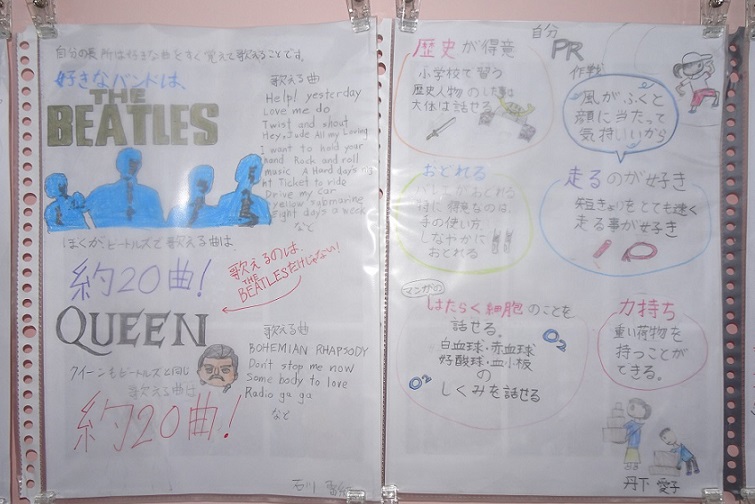 自分の長所は好きな曲をすぐ覚えて歌えることです。
好きなバンドは、
THE
BEATLES
歌える曲
Help! yesterday
Love me do
Twist and shout
Hey, Jude All my Loving
I want to hold your
hand Rock and roll
music A Hard day's nig
ht Ticket to ride
Drive my car
yellow submarine
Eight days a week
など
ぼくが、ビートルズで歌える曲は
約20曲!
歌えるのは、
THE
BEATLESだけじゃない!
QUEEN
クイーンもビートルズと同じ
歌える曲は
約20曲!
歌える曲
BOHEMIAN RHAPSODY
Don't stop me now
Some body to love
Radio ga ga
など
石川
自分
PR
作戦
歴史が得意
小学校で習う
歴史人物のした事は
大体は話せる
風がふくと
顔に当たって
気持ちいいから
おどれる
おどれる
特に得意なのは、
手の使い方
しなやかに
おどれる
走るのが好き
短きょりをとても速く
走る事が好き
マンガの
はたらく細胞のことを
話せる。
白血球・赤血球
好酸球・血小板
の
しくみを話せる
O2
O2
力持ち
重い荷物を
持つことが
できる。
丹下 愛子